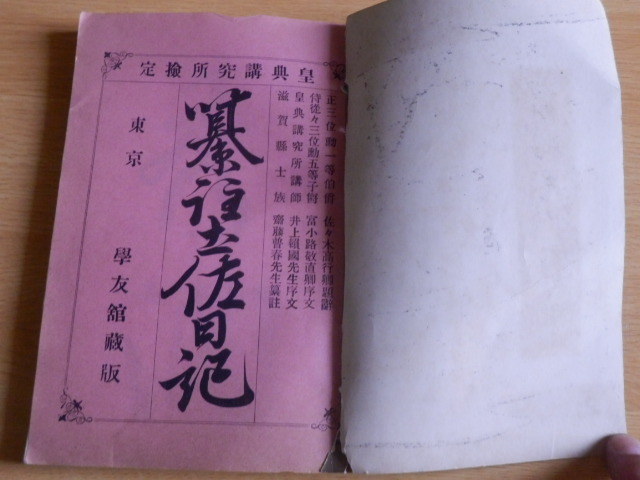 皇典講究所撿定
正三位勳一等伯爵 佐々木高行卿題辭
侍從々三位勳五等子爵 富小路敬直卿序文
皇典講究所講師 井上頼國先生序文
滋賀縣士族 齋藤普春先生纂註
纂註土佐日記
東京 學友舘藏版